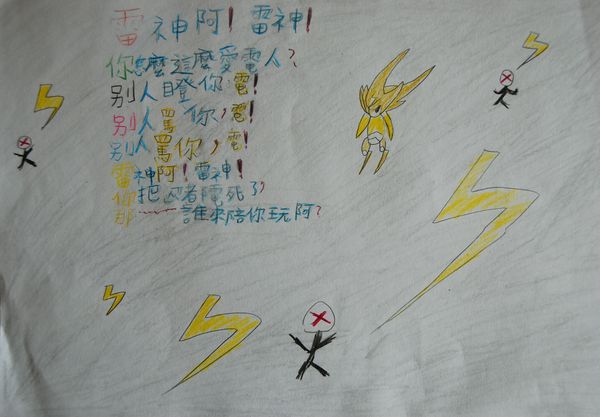 雷神阿!雷神!
你怎麼這麼愛電人?
別人瞪你,電!
別人罵你,電!
別人罵你,電!
雷神阿!雷神!
你把忍者電死了,
那……誰來陪你玩阿?